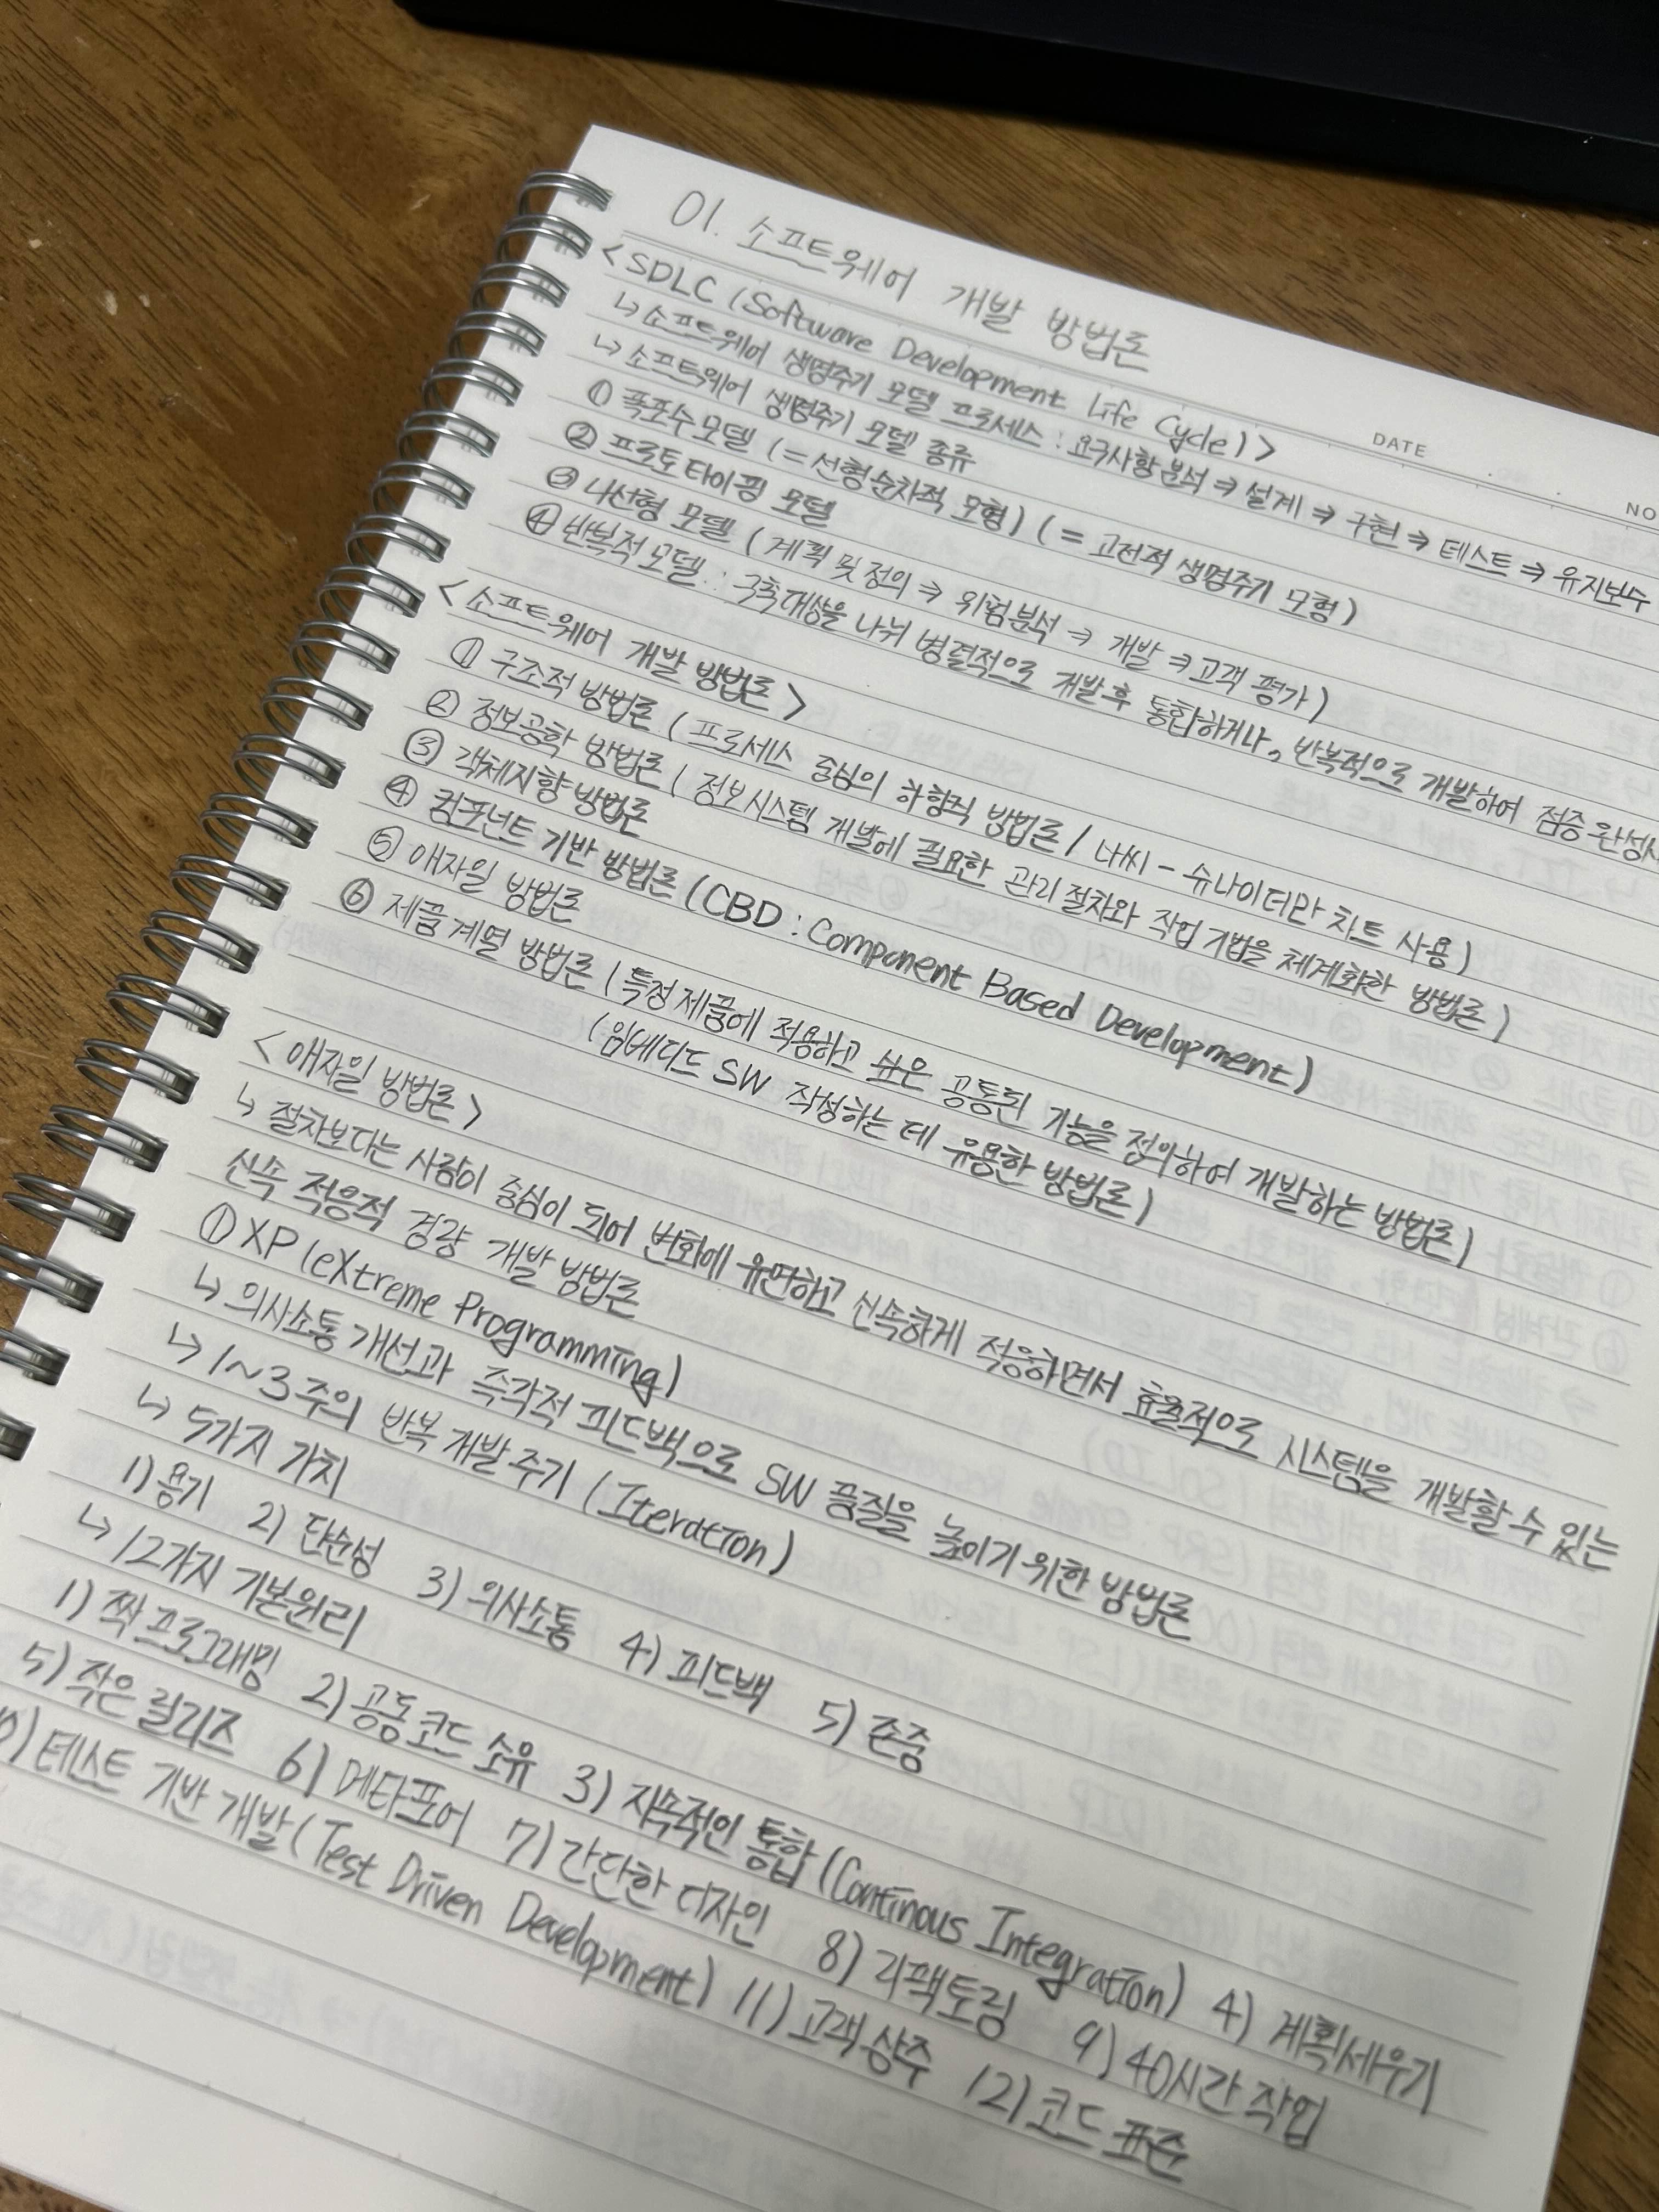 01. 소프트웨어 개발 방법론
DATE
NO
<SDLC (Software Development Life Cycle)>
↳ 소프트웨어 생명주기 모델 프로세스 : 요구사항분석 ⇒ 설계 ⇒ 구현 ⇒ 테스트 ⇒ 유지보수
↳ 소프트웨어 생명주기 모델 종류
① 폭포수 모델 (= 선형순차적 모형) (= 고전적 생명주기 모형)
② 프로토타이핑 모델
③ 나선형 모델 (계획 및 정의 ⇒ 위험분석 ⇒ 개발 ⇒ 고객 평가)
④ 반복적 모델 : 구축대상을 나눠 병렬적으로 개발 후 통합하거나, 반복적으로 개발하여 점증 완성
<소프트웨어 개발 방법론>
① 구조적 방법론 (프로세스 중심의 하향식 방법론 / 나씨-슈나이더만 차트 사용)
② 정보공학 방법론 (정보시스템 개발에 필요한 관리 절차와 작업 기법을 체계화한 방법론)
③ 객체지향 방법론
④ 컴포넌트 기반 방법론 (CBD : Component Based Development)
⑤ 애자일 방법론
⑥ 제품 계열 방법론 (특정 제품에 적용하고 싶은 공통된 기능을 정의하여 개발하는 방법론)
(임베디드 SW 작성하는 데 유용한 방법론)
<애자일 방법론>
↳ 절차보다는 사람이 중심이 되어 변화에 유연하고 신속하게 적응하면서 효율적으로 시스템을 개발할 수 있는
신속 적응적 경량 개발 방법론
① XP (eXtreme Programming)
↳ 의사소통 개선과 즉각적 피드백으로 SW 품질을 높이기 위한 방법론
↳ 1~3주의 반복 개발 주기 (Iteration)
↳ 5가지 가치
1) 용기 2) 단순성 3) 의사소통 4) 피드백 5) 존중
↳ 12가지 기본원리
1) 짝 프로그래밍 2) 공동 코드 소유 3) 지속적인 통합 (Continous Integration) 4) 계획세우기
5) 작은 릴리즈 6) 메타포어 7) 간단한 디자인 8) 리팩토링 9) 40시간 작업
0) 테스트 기반 개발 (Test Driven Development) 11) 고객 상주 12) 코드 표준